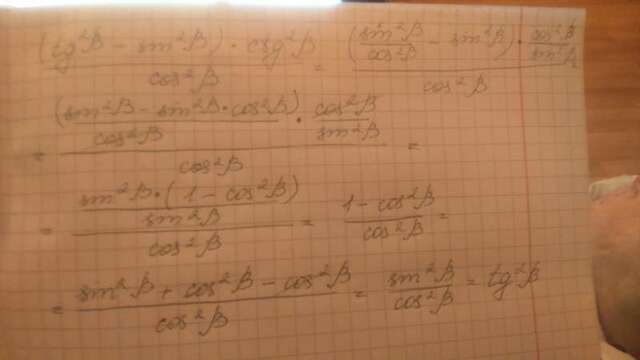 ((tg²β - sin²β) · ctg²β)/(cos²β) = ((sin²β/cos²β - sin²β) · cos²β/sin²β)/(cos²β)
= ((sin²β - sin²β · cos²β)/(cos²β) · cos²β/sin²β)/(cos²β) =
= ((sin²β · (1 - cos²β))/(sin²β))/(cos²β) = (1 - cos²β)/(cos²β) =
= (sin²β + cos²β - cos²β)/(cos²β) = sin²β/cos²β = tg²β